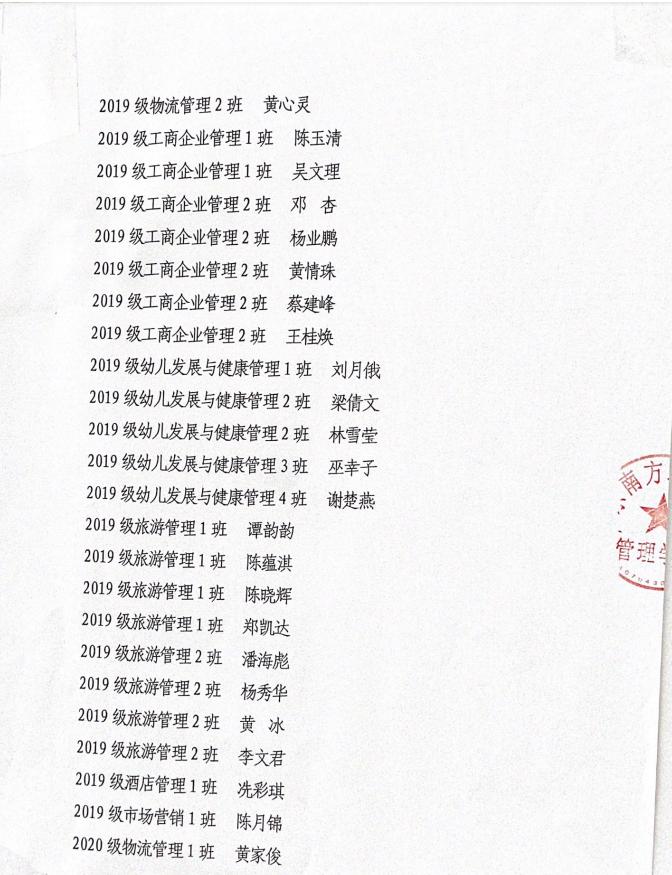 2019 级物流管理 2 班 黄心灵
2019 级工商企业管理 1 班 陈玉清
2019 级工商企业管理 1 班 吴文理
2019 级工商企业管理 2 班 邓 杏
2019 级工商企业管理 2 班 杨业鹏
2019 级工商企业管理 2 班 黄情珠
2019 级工商企业管理 2 班 蔡建峰
2019 级工商企业管理 2 班 王桂焕
2019 级幼儿发展与健康管理 1 班 刘月俄
2019 级幼儿发展与健康管理 2 班 梁倩文
2019 级幼儿发展与健康管理 2 班 林雪莹
2019 级幼儿发展与健康管理 3 班 巫幸子
2019 级幼儿发展与健康管理 4 班 谢楚燕
2019 级旅游管理 1 班 谭韵韵
2019 级旅游管理 1 班 陈蕴淇
2019 级旅游管理 1 班 陈晓辉
2019 级旅游管理 1 班 郑凯达
2019 级旅游管理 2 班 潘海彪
2019 级旅游管理 2 班 杨秀华
2019 级旅游管理 2 班 黄 冰
2019 级旅游管理 2 班 李文君
2019 级酒店管理 1 班 冼彩琪
2019 级市场营销 1 班 陈月锦
2020 级物流管理 1 班 黄家俊
南方
管理学